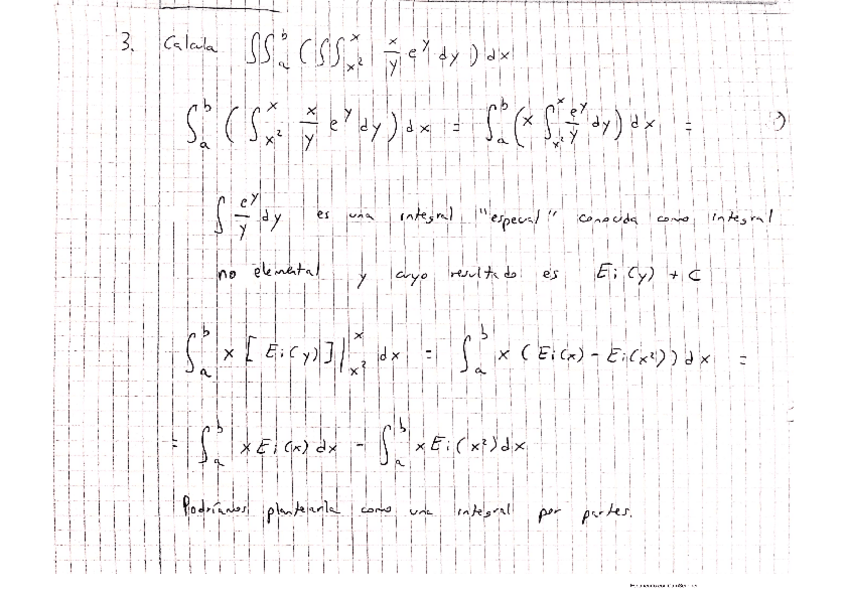 3. Calcula ∫∫ₐᵇ (∫∫ₓ²ˣ x/y eʸ dy) dx
∫ₐᵇ (∫ₓ²ˣ x/y eʸ dy) dx = ∫ₐᵇ (x ∫ₓ²ˣ eʸ/y dy) dx =
∫ eʸ/y dy es una integral "especial" conocida como integral
no elemental y cuyo resultado es Ei(y) + C
∫ₐᵇ x [Ei(y)]|ₓ²ˣ dx = ∫ₐᵇ x (Ei(x) - Ei(x²)) dx =
= ∫ₐᵇ x Ei(x) dx - ∫ₐᵇ x Ei(x²) dx
Podríamos plantearla como una integral por partes.